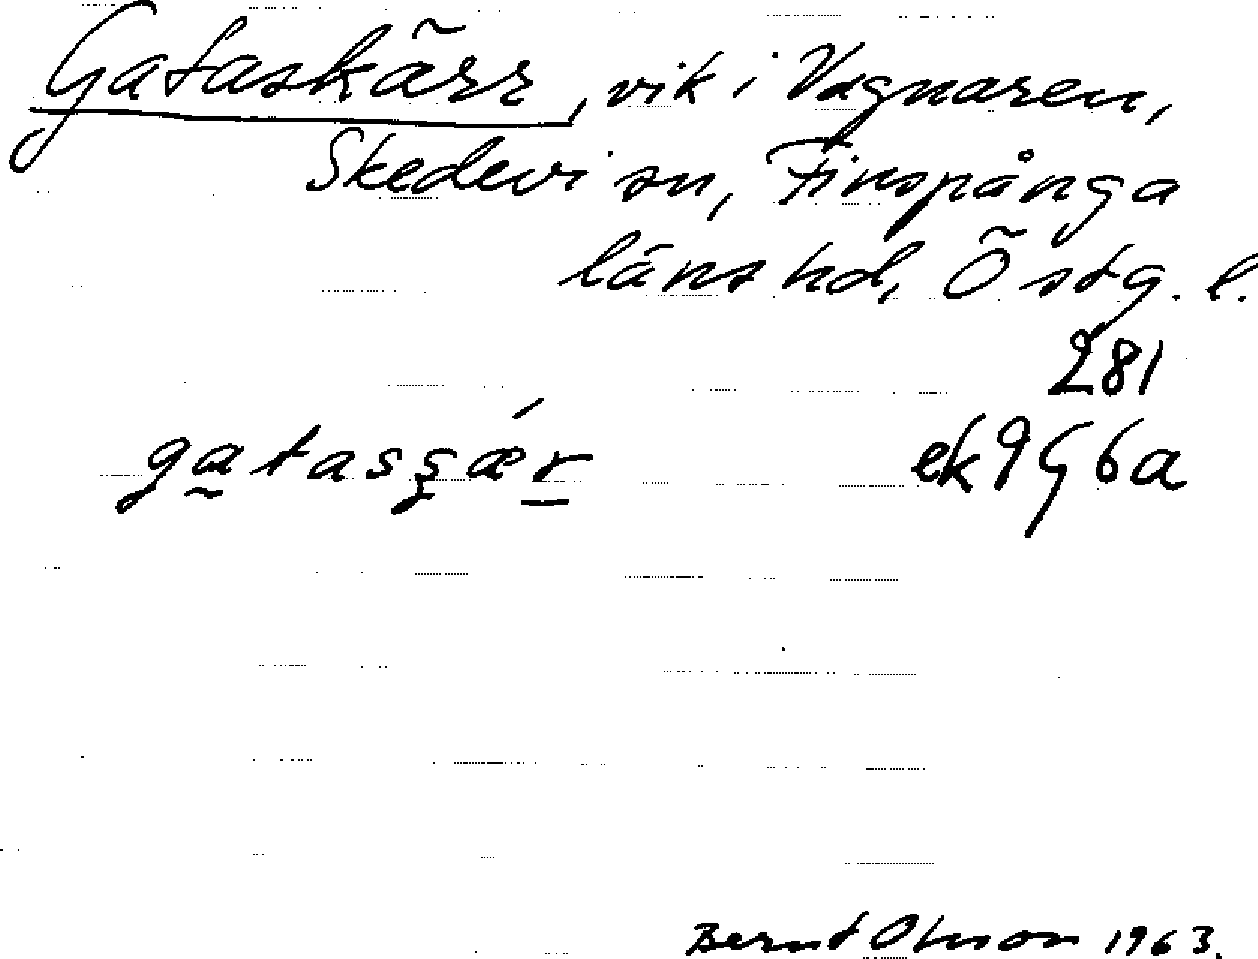 Gataskärr, vik i Vagnaren,
Skedevi sn, Finspånga
läns hd, Östg. l.
281
ek 9G6a
Bernt Olsson 1963.